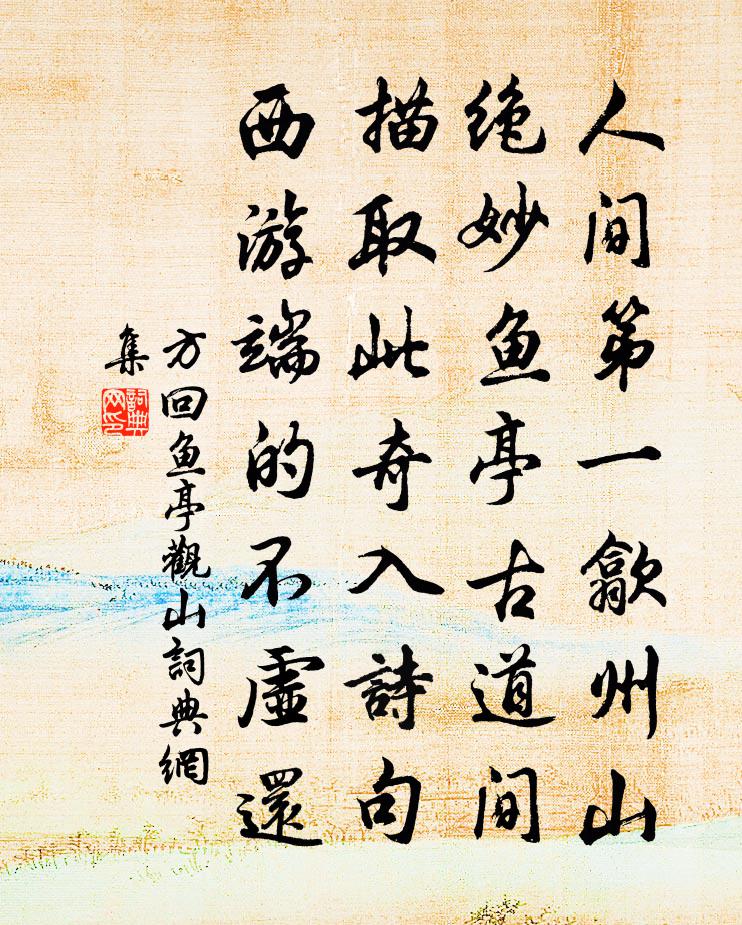 人间第一歙州山
绝妙鱼亭古道间
描取此奇入詩句
西游端的不虚還
方回鱼亭觀山詞典網
集
詞典網印